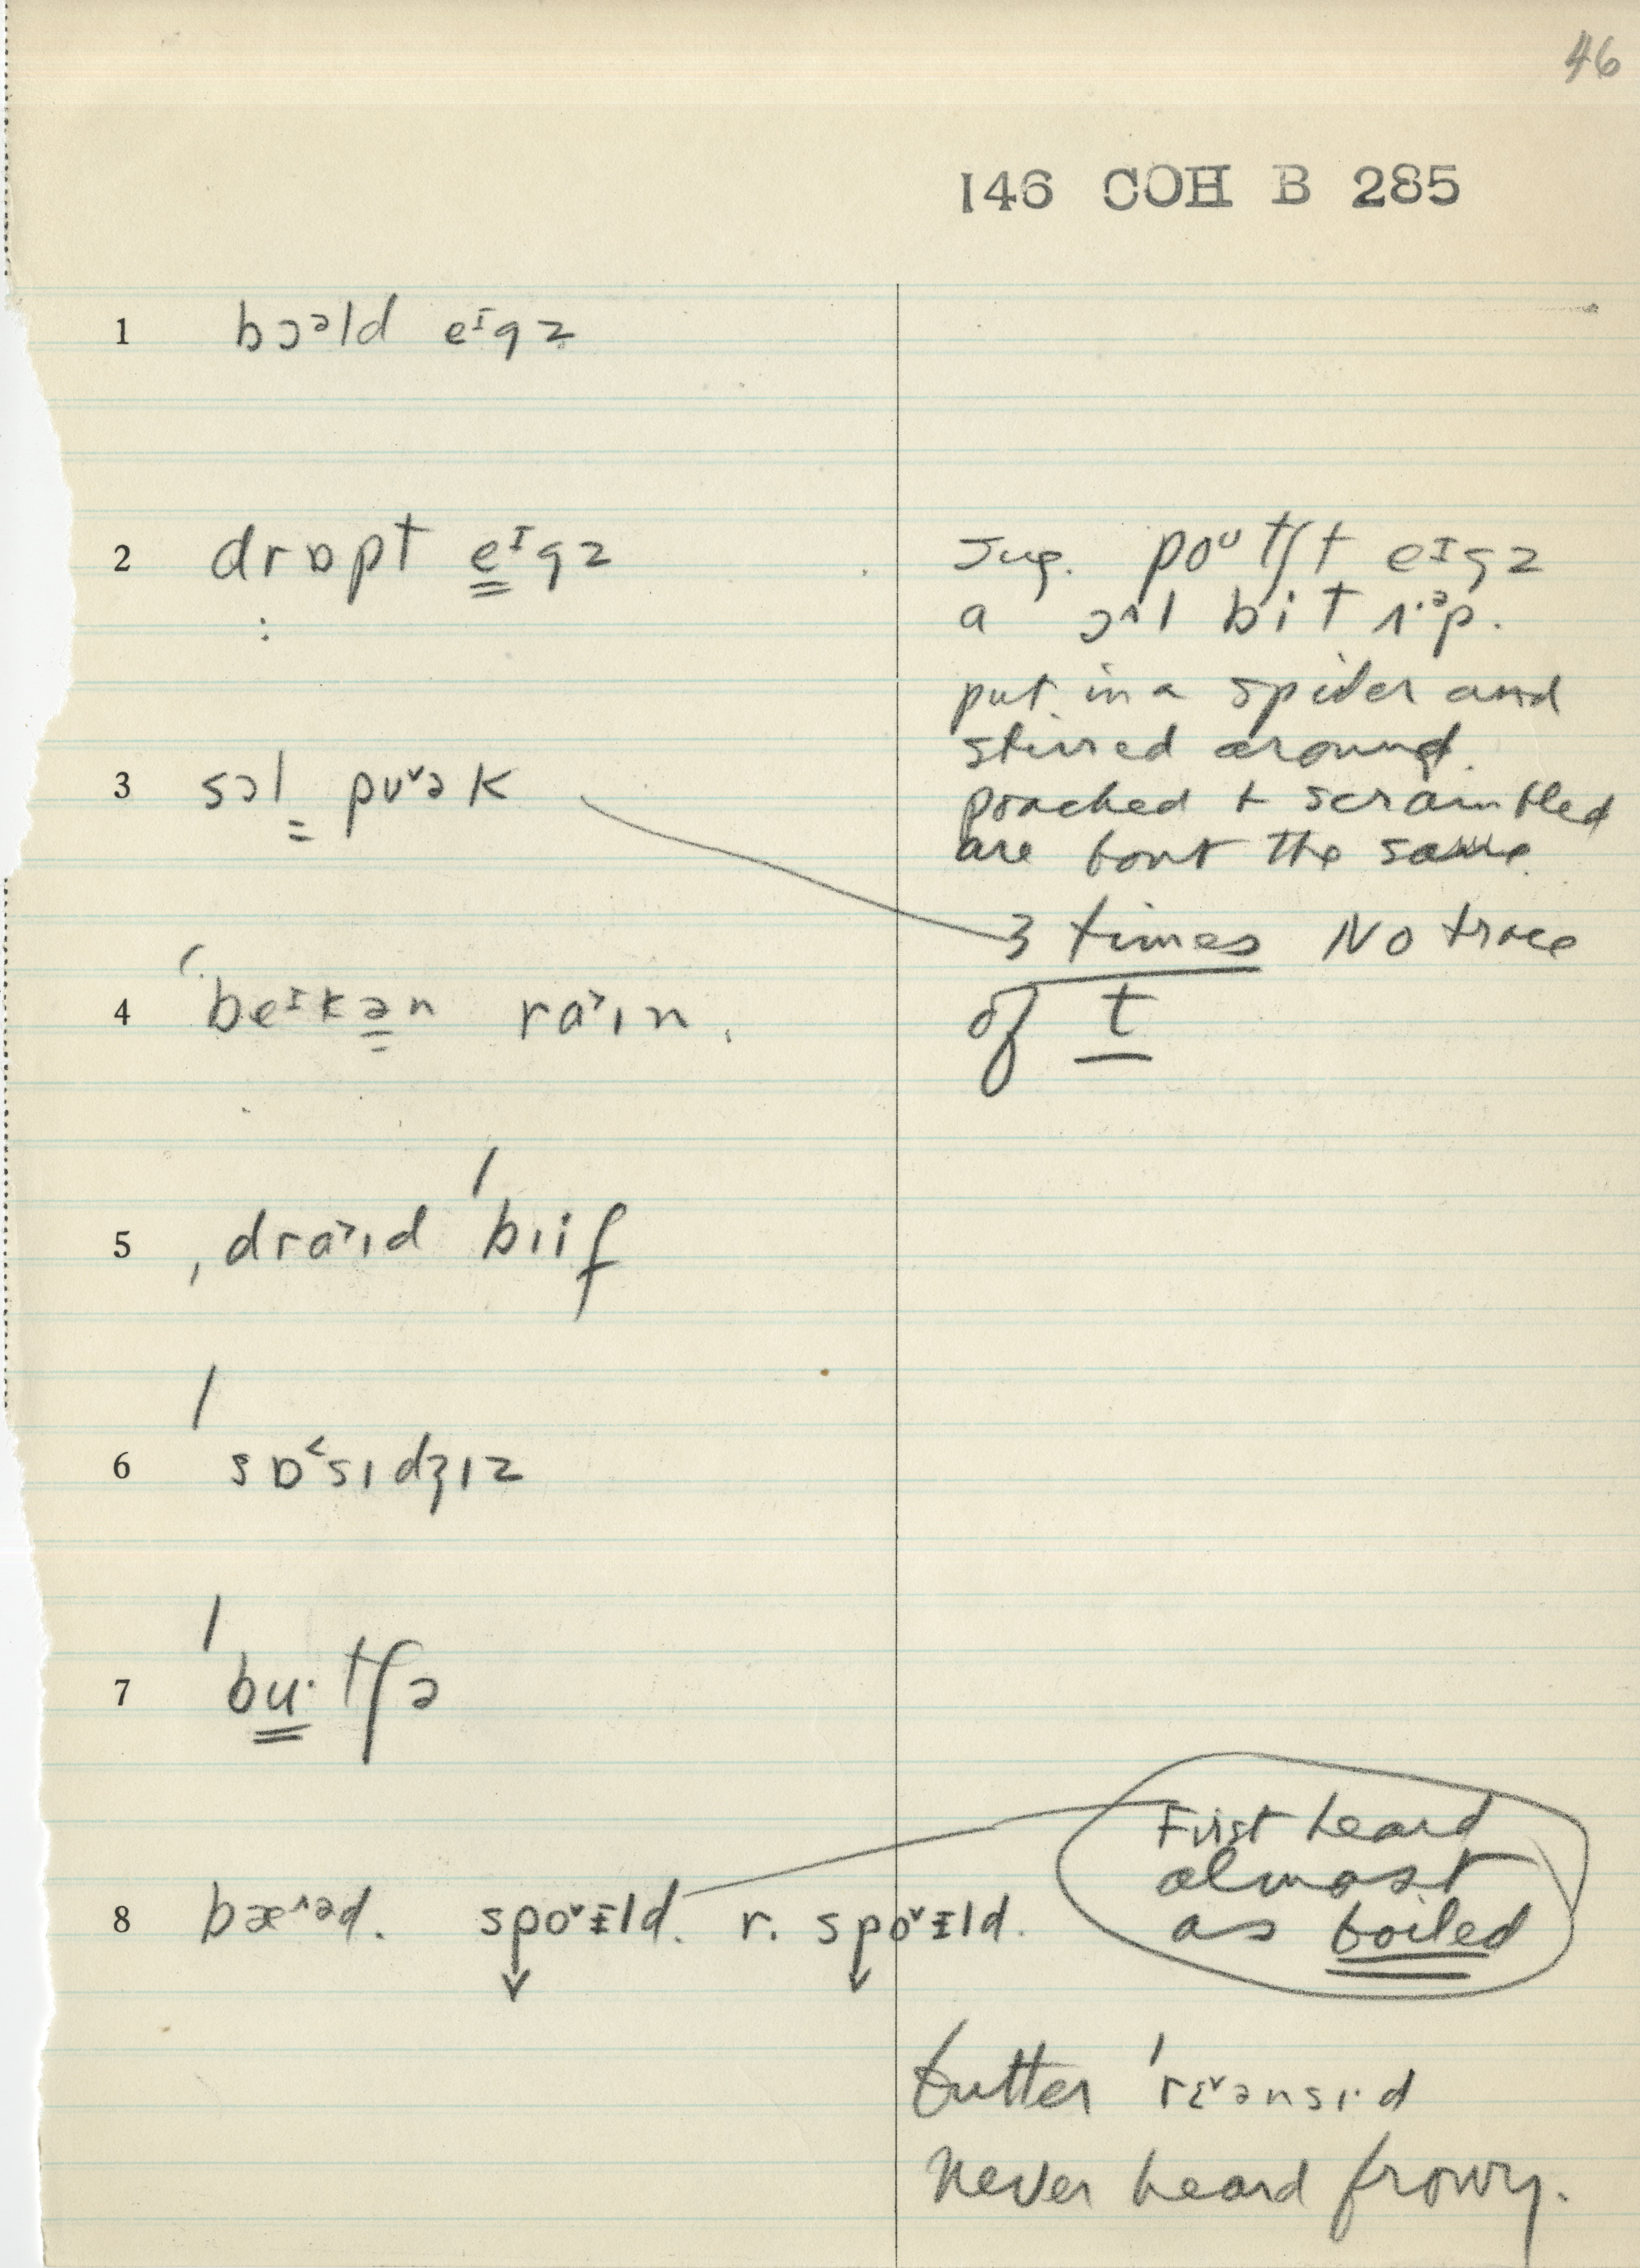 46
146 COH B 285
1 bɔᵊld eᶦgz
2 drɒpt eᶦgz
Sug. poᶷtʃt eᶦgz
a ɔ^l bit ɪ·ᵊp.
put in a spider and
stirred around.
poached + scrambled
are bout the same.
3 sɔl pʊ˅ək
3 times No trace
of t
4 ˈbeᶦkən ra˃ɪn.
5 ˌdra˃ɪd ˈbɪif
6 ˈsɒ˂sɪdʒɪz
7 ˈbu·tʃə
8 bæ^ᵊd. spo˅ɪld. r. spo˅ɪld.
First heard
almost
as boiled
butter ˈrɛ˅ənsɪ·d
Never heard frowy.